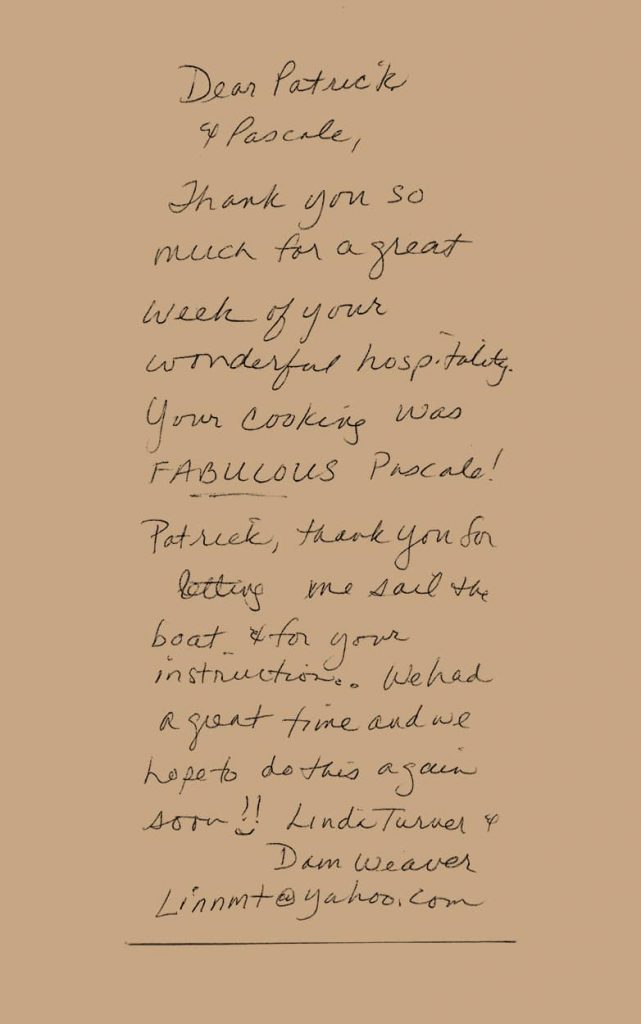 Dear Patrick
& Pascale,
Thank you so
much for a great
week of your
wonderful hospitality.
Your cooking was
FABULOUS Pascale!
Patrick, thank you for
letting me sail the
boat & for your
instruction.. We had
a great time and we
hope to do this again
soon!! Linda Turner &
Dam Weaver
Linnmt@yahoo.com